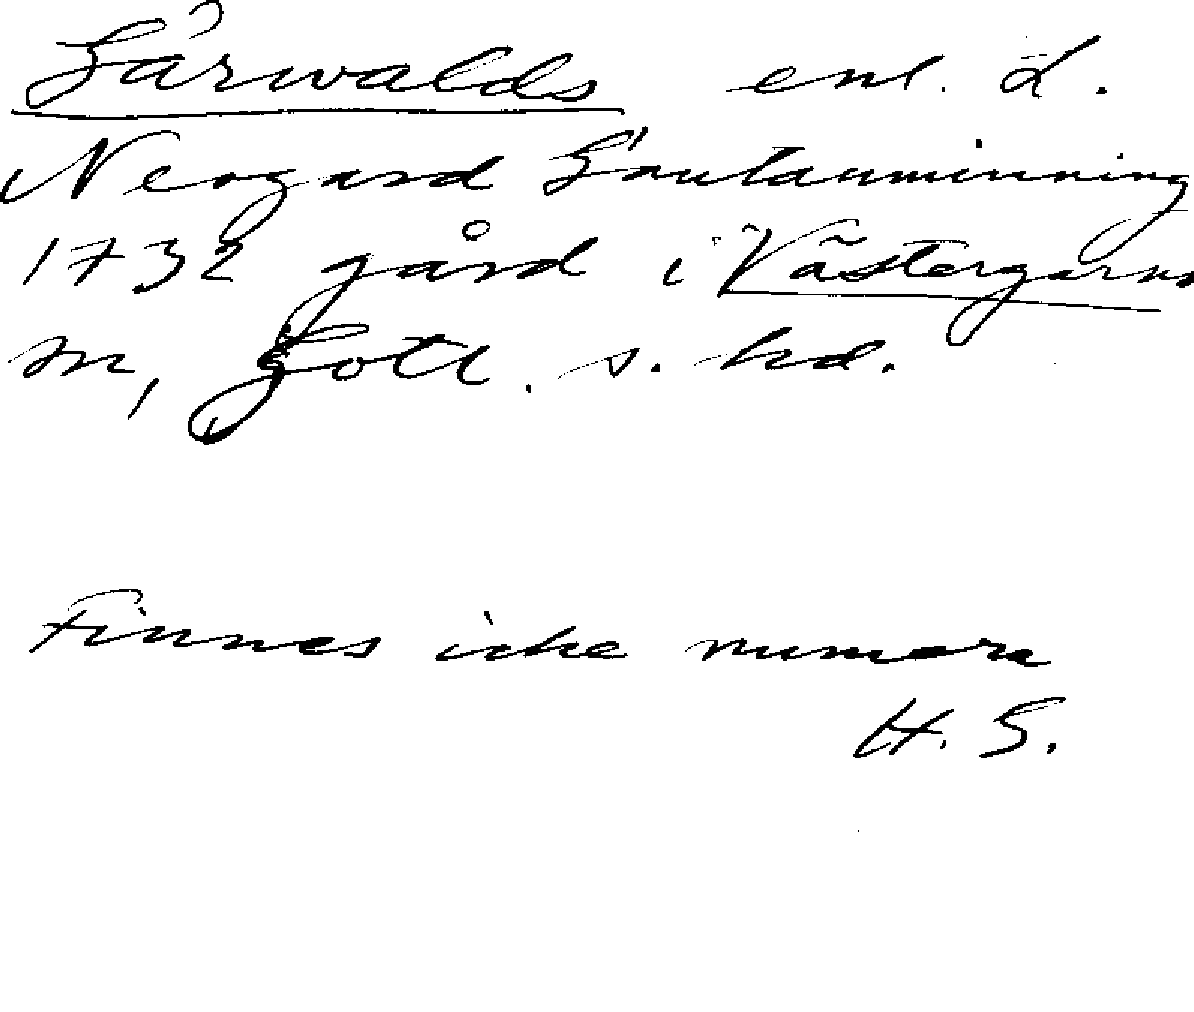 Gårwalds enl. L.
Neogard Gautauminning
1732 gård i Västergarns
sn, Gotl. s. hd.
Finnes icke numera
H. G.